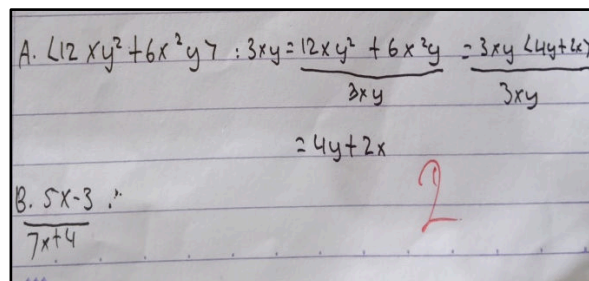 A. <12xy² + 6x²y> : 3xy = 12xy² + 6x²y / 3xy = 3xy <4y+2x> / 3xy
= 4y+2x
2
B. 5x-3 / 7x+4